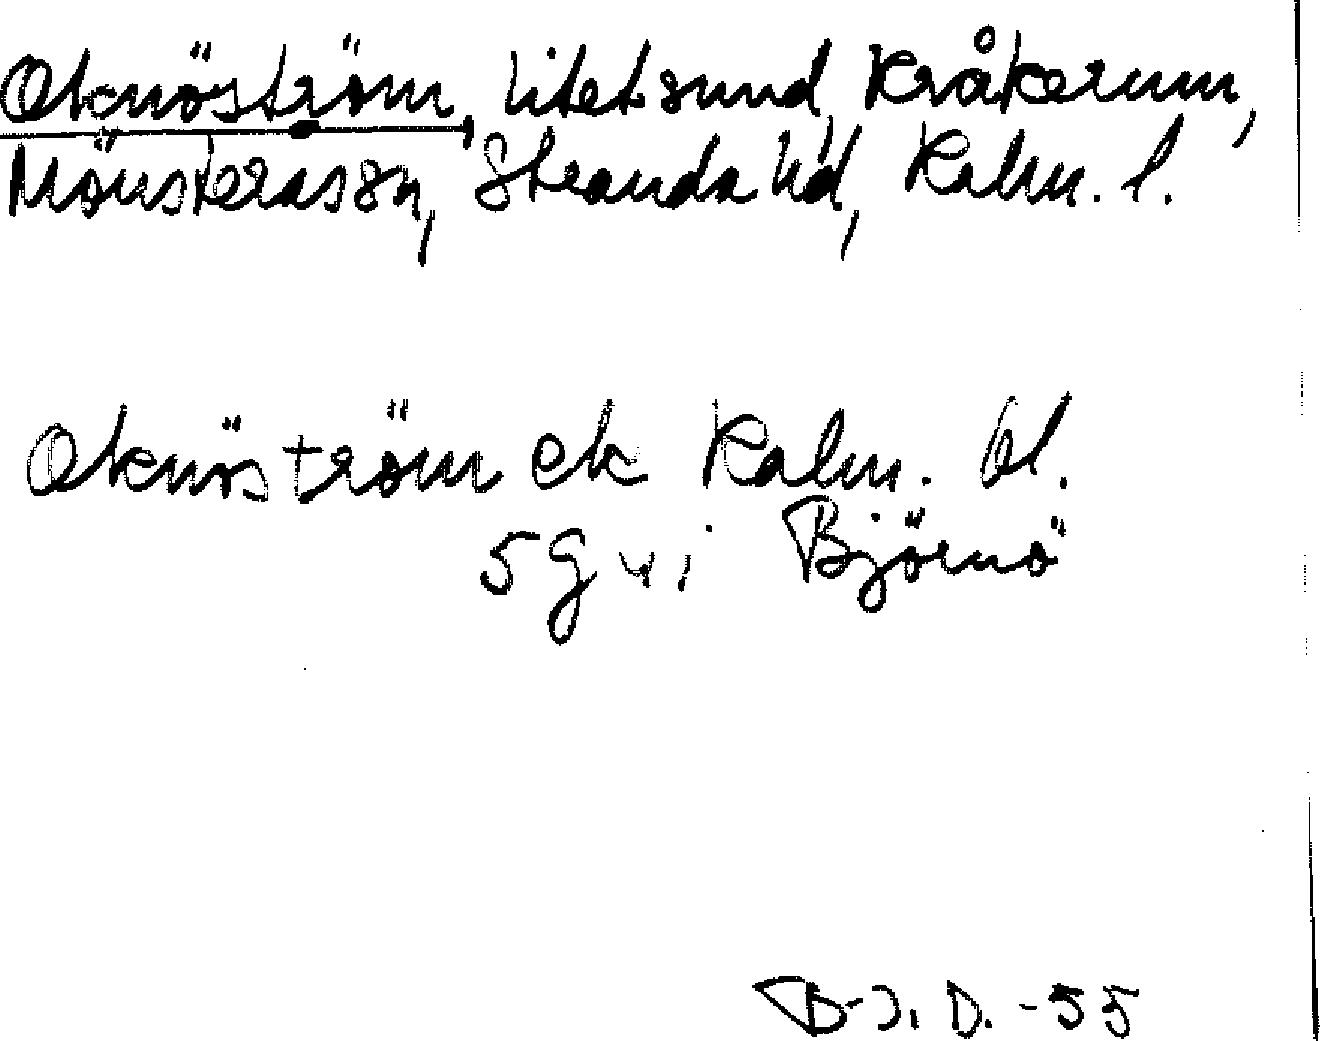 Oknöström, litet sund, Kråkerum,
Mönsterås sn, Stranda hd, Kalm. l.
Oknöström ek Kalm. bl.
5 g v i Björnö
B-J. D. -55